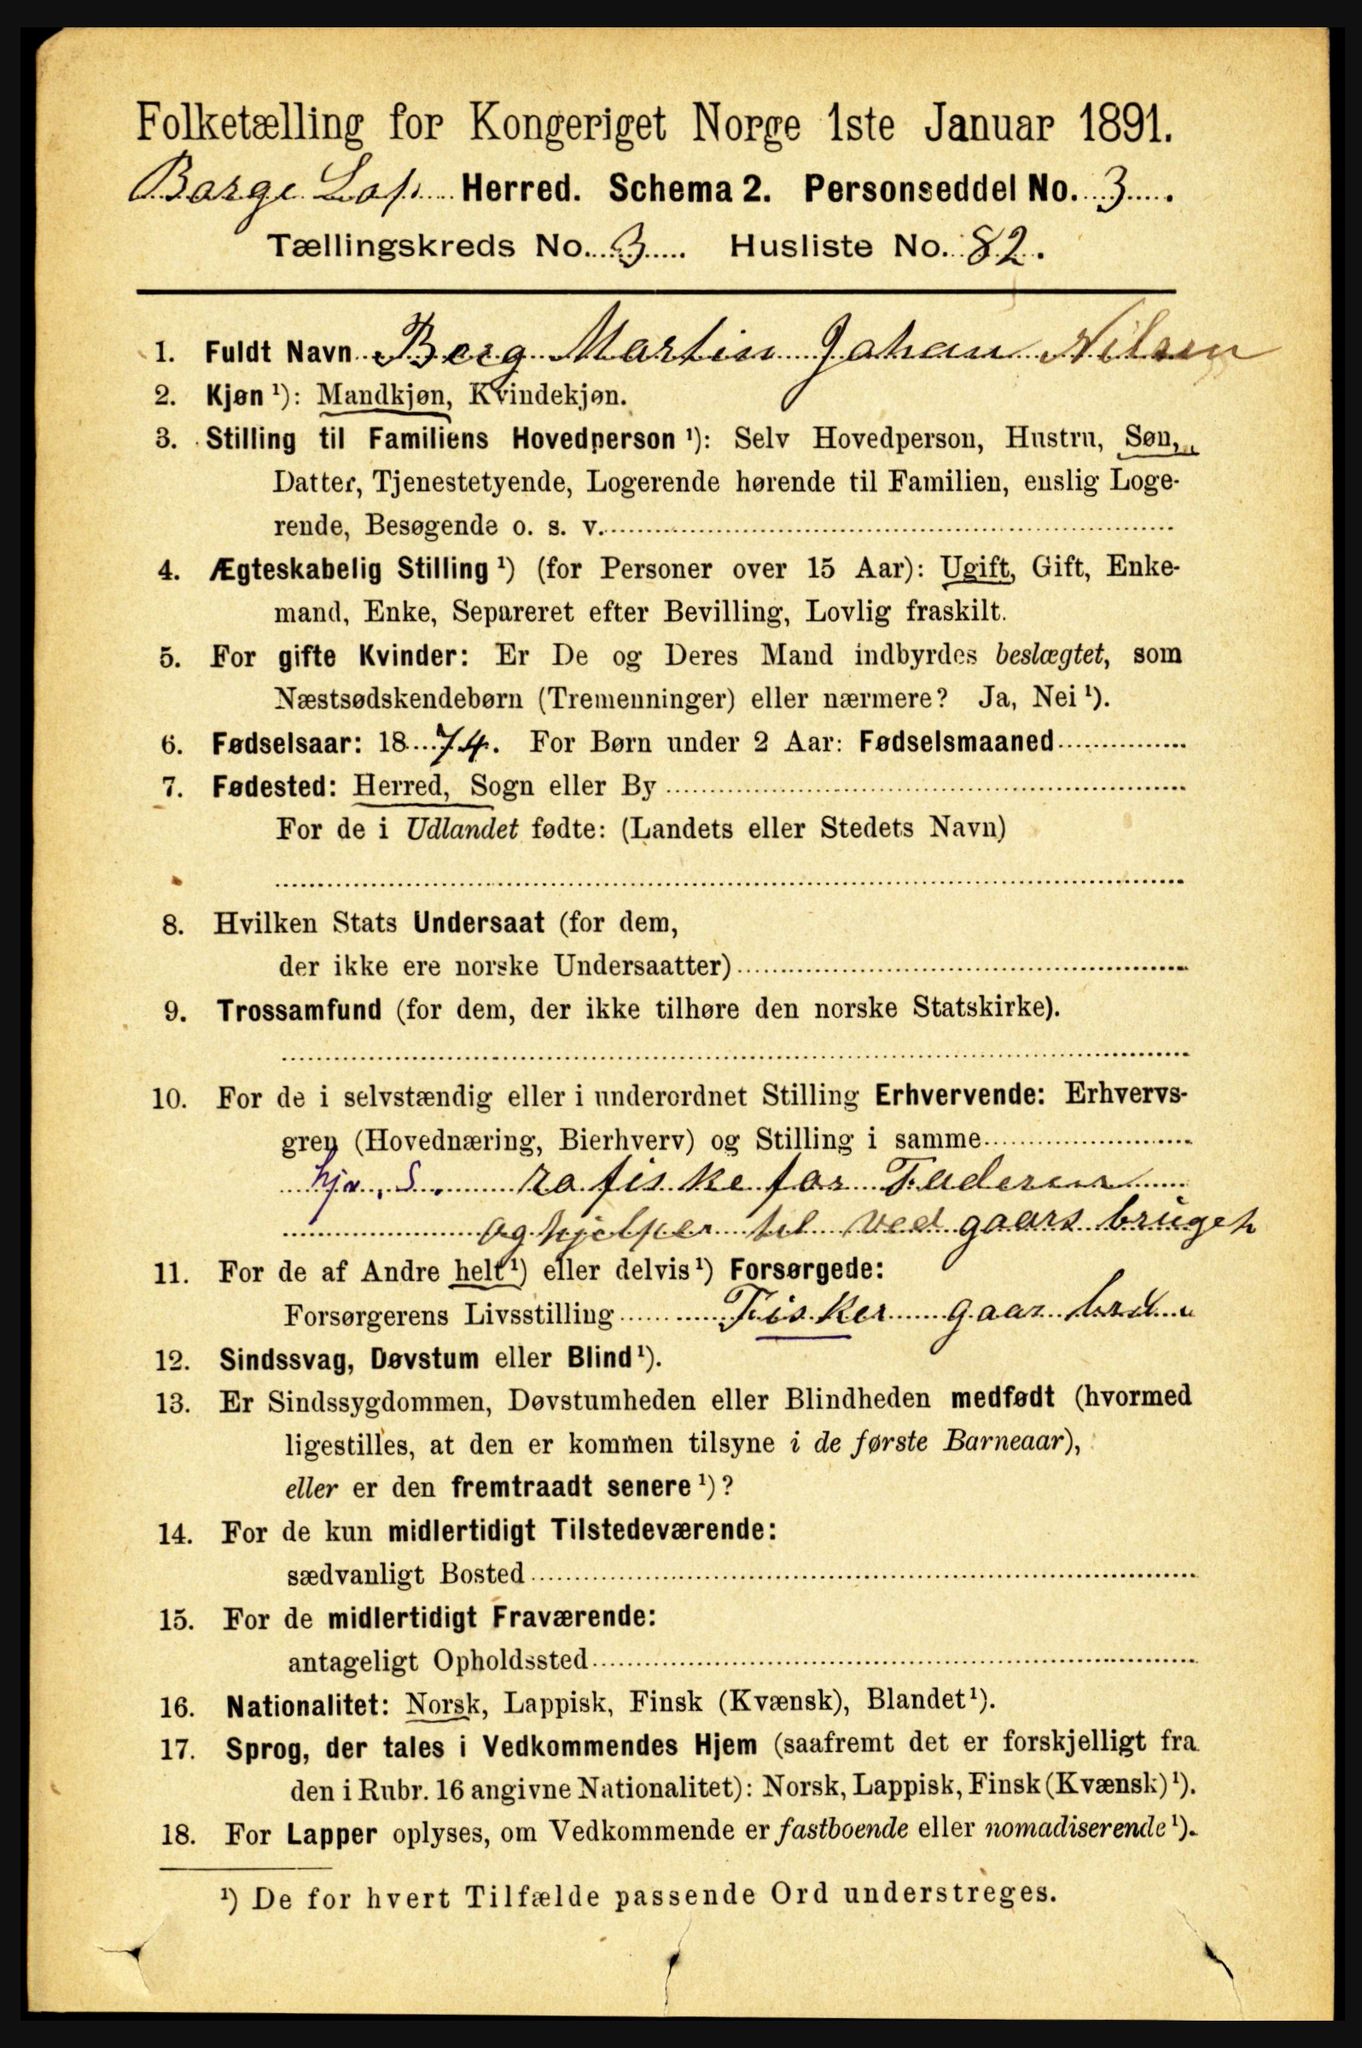 Folketælling for Kongeriget Norge 1ste Januar 1891.
Borge Lof. Herred. Schema 2. Personseddel No. 3.
Tællingskreds No. 3. Husliste No. 82.
1. Fuldt Navn Berg Martin Johan Nilsen
2. Kjøn ¹): Mandkjøn, Kvindekjøn.
3. Stilling til Familiens Hovedperson ¹): Selv Hovedperson, Hustru, Søn,
Datter, Tjenestetyende, Logerende hørende til Familien, enslig Loge-
rende, Besøgende o. s. v.
4. Ægteskabelig Stilling ¹) (for Personer over 15 Aar): Ugift, Gift, Enke-
mand, Enke, Separeret efter Bevilling, Lovlig fraskilt.
5. For gifte Kvinder: Er De og Deres Mand indbyrdes beslægtet, som
Næstsødskendebørn (Tremenninger) eller nærmere? Ja, Nei ¹).
6. Fødselsaar: 1874. For Børn under 2 Aar: Fødselsmaaned
7. Fødested: Herred, Sogn eller By
For de i Udlandet fødte: (Landets eller Stedets Navn)
8. Hvilken Stats Undersaat (for dem,
der ikke ere norske Undersaatter)
9. Trossamfund (for dem, der ikke tilhøre den norske Statskirke).
10. For de i selvstændig eller i underordnet Stilling Erhvervende: Erhvervs-
gren (Hovednæring, Bierhverv) og Stilling i samme
hjv. S. rofiske for Faderen
og hjelper til ved gaars bruget
11. For de af Andre helt ¹) eller delvis ¹) Forsørgede:
Forsørgerens Livsstilling Fisker gaar
12. Sindssvag, Døvstum eller Blind ¹).
13. Er Sindssygdommen, Døvstumheden eller Blindheden medfødt (hvormed
ligestilles, at den er kommen tilsyne i de første Barneaar),
eller er den fremtraadt senere ¹)?
14. For de kun midlertidigt Tilstedeværende:
sædvanligt Bosted
15. For de midlertidigt Fraværende:
antageligt Opholdssted
16. Nationalitet: Norsk, Lappisk, Finsk (Kvænsk), Blandet ¹).
17. Sprog, der tales i Vedkommendes Hjem (saafremt det er forskjelligt fra
den i Rubr. 16 angivne Nationalitet): Norsk, Lappisk, Finsk (Kvænsk) ¹).
18. For Lapper oplyses, om Vedkommende er fastboende eller nomadiserende ¹).
¹) De for hvert Tilfælde passende Ord understreges.